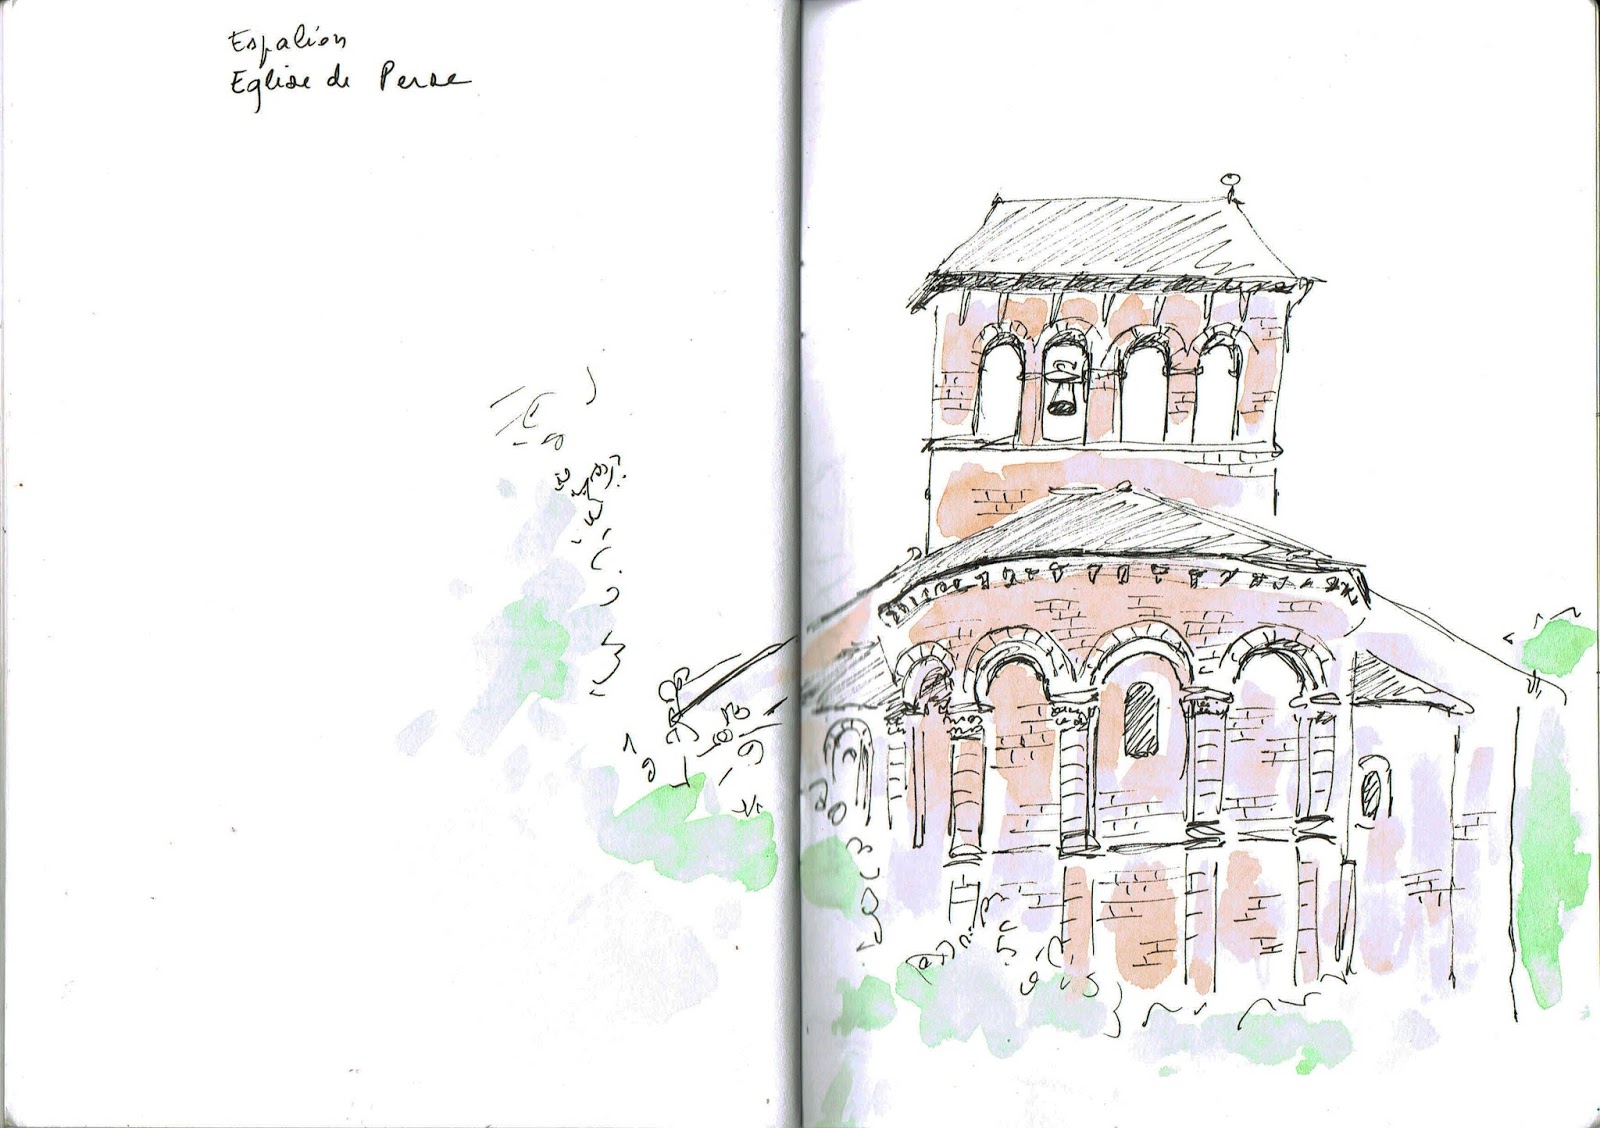 Espalion
Eglise de Perse